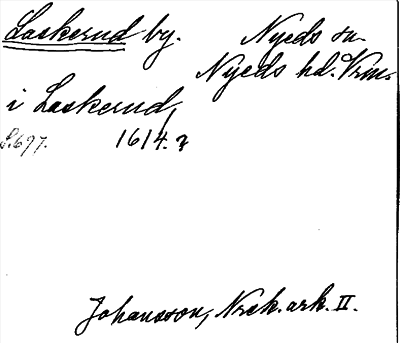 Laskerud by.
Nyeds sn.
Nyeds hd. Vrm.
i Laskerud,
S. 697.
1614.
Johansson, Nrck. ark. II.